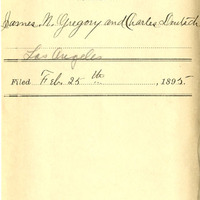 James N. Gregory and Charles
Los Angeles
Filed Feb. 25th, 1895